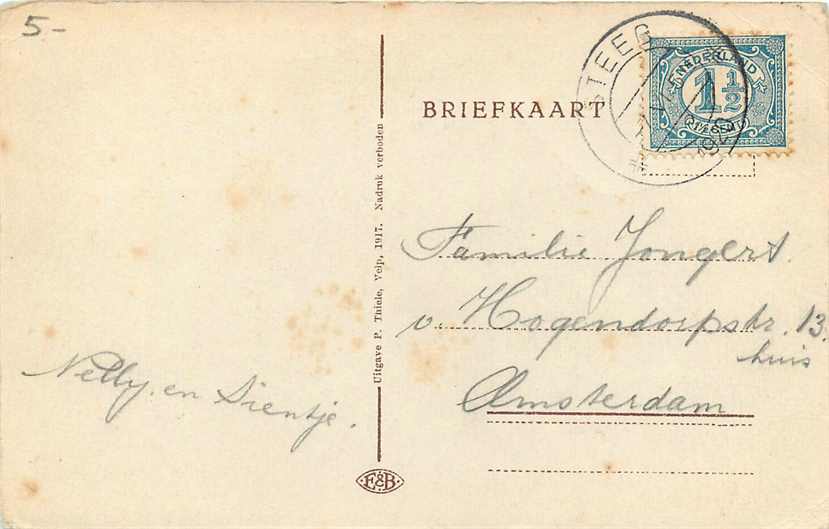 5-
BRIEFKAART
STEEG
192
NEDERLAND
1 1/2
CENT
Familie Jongert.
v. Hogendorpstr. 13.
huis
Amsterdam
Nelly. en Sientje.
Uitgave P. Thiele, Velp, 1917. Nadruk verboden
E&B